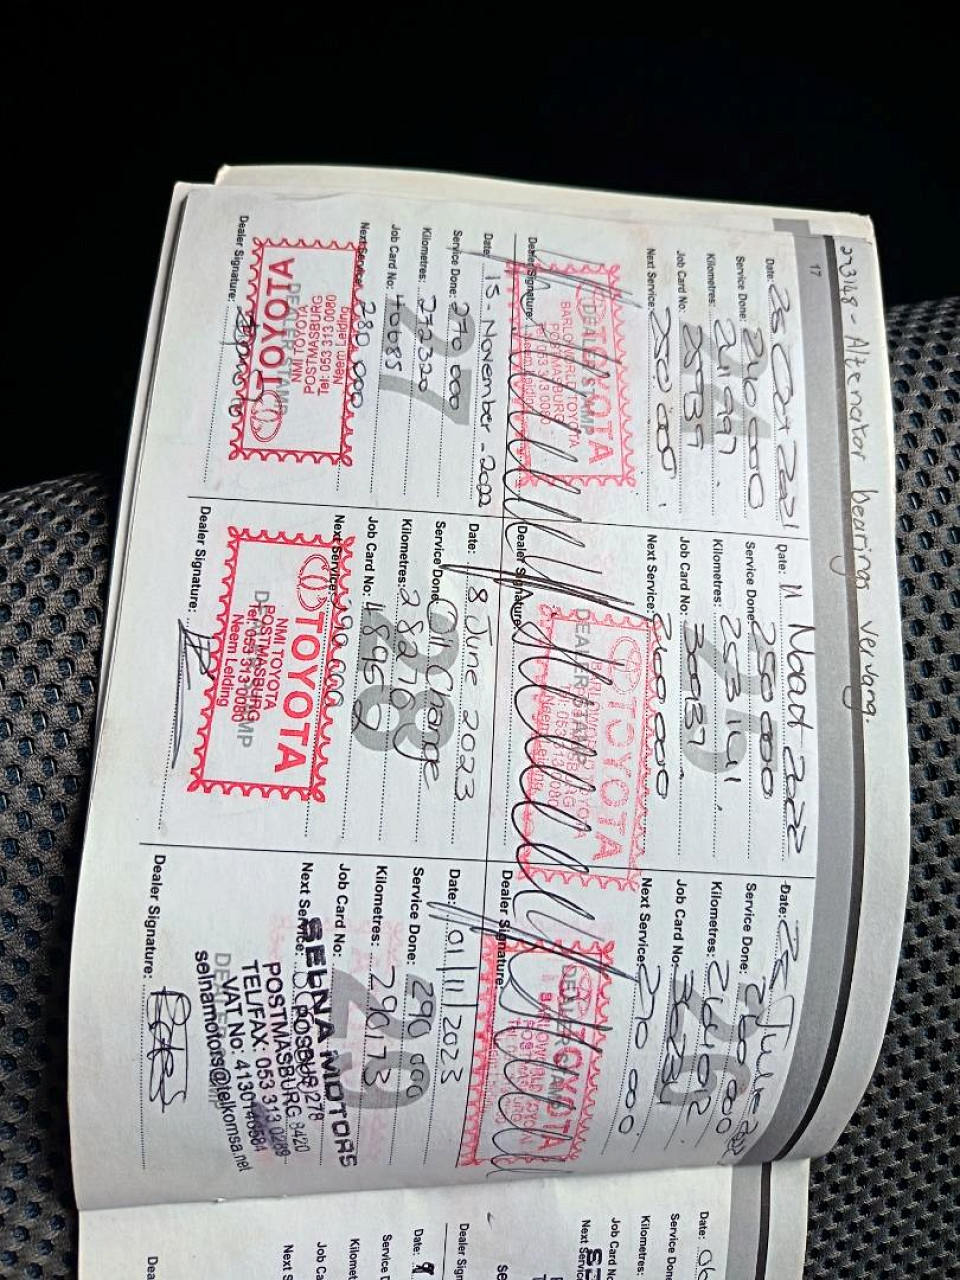 273148 - Alternator bearing vervang.
17
Date: 26 Oct 2021
Service Done: 240 000
Kilometres: 241997
Job Card No: 28939
Next Service: 250 000
DEALER STAMP
TOYOTA
BARLOWORLD TOYOTA
POSTMASBURG
Tel: 053 313 0080
Neem Leiding
Dealer Signature:
Date: 11 Maart 2022
Service Done: 250 000
Kilometres: 253141
Job Card No: 30937
Next Service: 260 0000
DEALER STAMP
TOYOTA
Dealer Signature:
Date:
Service Done: 260 000
Kilometres: 264012
Job Card No:
Next Service: 270 000
26
DEALER STAMP
TOYOTA
Dealer Signature:
Date: 15 - November - 2022
Service Done: 270 000
Kilometres: 272320
Job Card No: 40085
Next Service: 280 000
27
DEALER STAMP
TOYOTA
NMI TOYOTA
POSTMASBURG
Tel: 053 313 0080
Neem Leiding
Dealer Signature:
Date: 8 June 2023
Service Done: Oil Change
Kilometres: 282707
Job Card No: 48952
Next Service: 290 000
28
TOYOTA
DEALER STAMP
NMI TOYOTA
POSTMASBURG
Tel: 053 313 0080
Neem Leiding
Dealer Signature:
Date: 01/11/2023
Service Done: 290 000
Kilometres: 290173
Job Card No:
Next Service:
29
SELNA MOTORS
POSBUS 278
POSTMASBURG 8420
TEL/FAX: 053 313 0209
VAT No: 4130169584
selnamotors@telkomsa.net
Dealer Signature:
Date: 06
Service Done
Kilometres:
Job Card No
Next Service
Dealer Sign
Date:
Service D
Kilomet
Job Ca
Next S
Dea